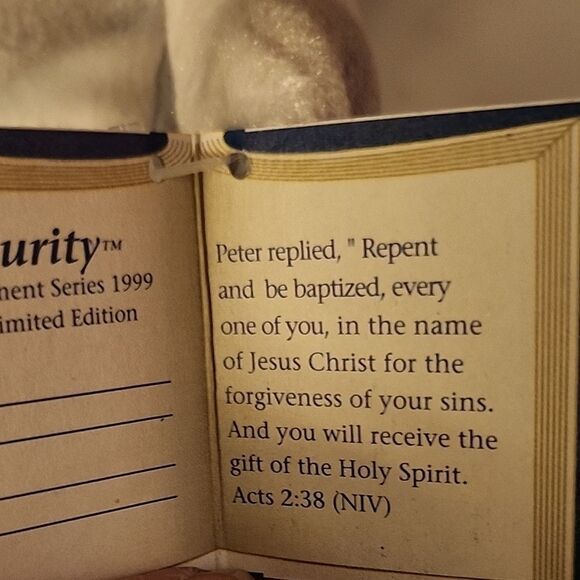 urity™
nent Series 1999
imited Edition
Peter replied, " Repent
and be baptized, every
one of you, in the name
of Jesus Christ for the
forgiveness of your sins.
And you will receive the
gift of the Holy Spirit.
Acts 2:38 (NIV)